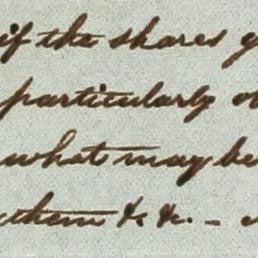 if the shares
particularly
what may be
them &c &c. –